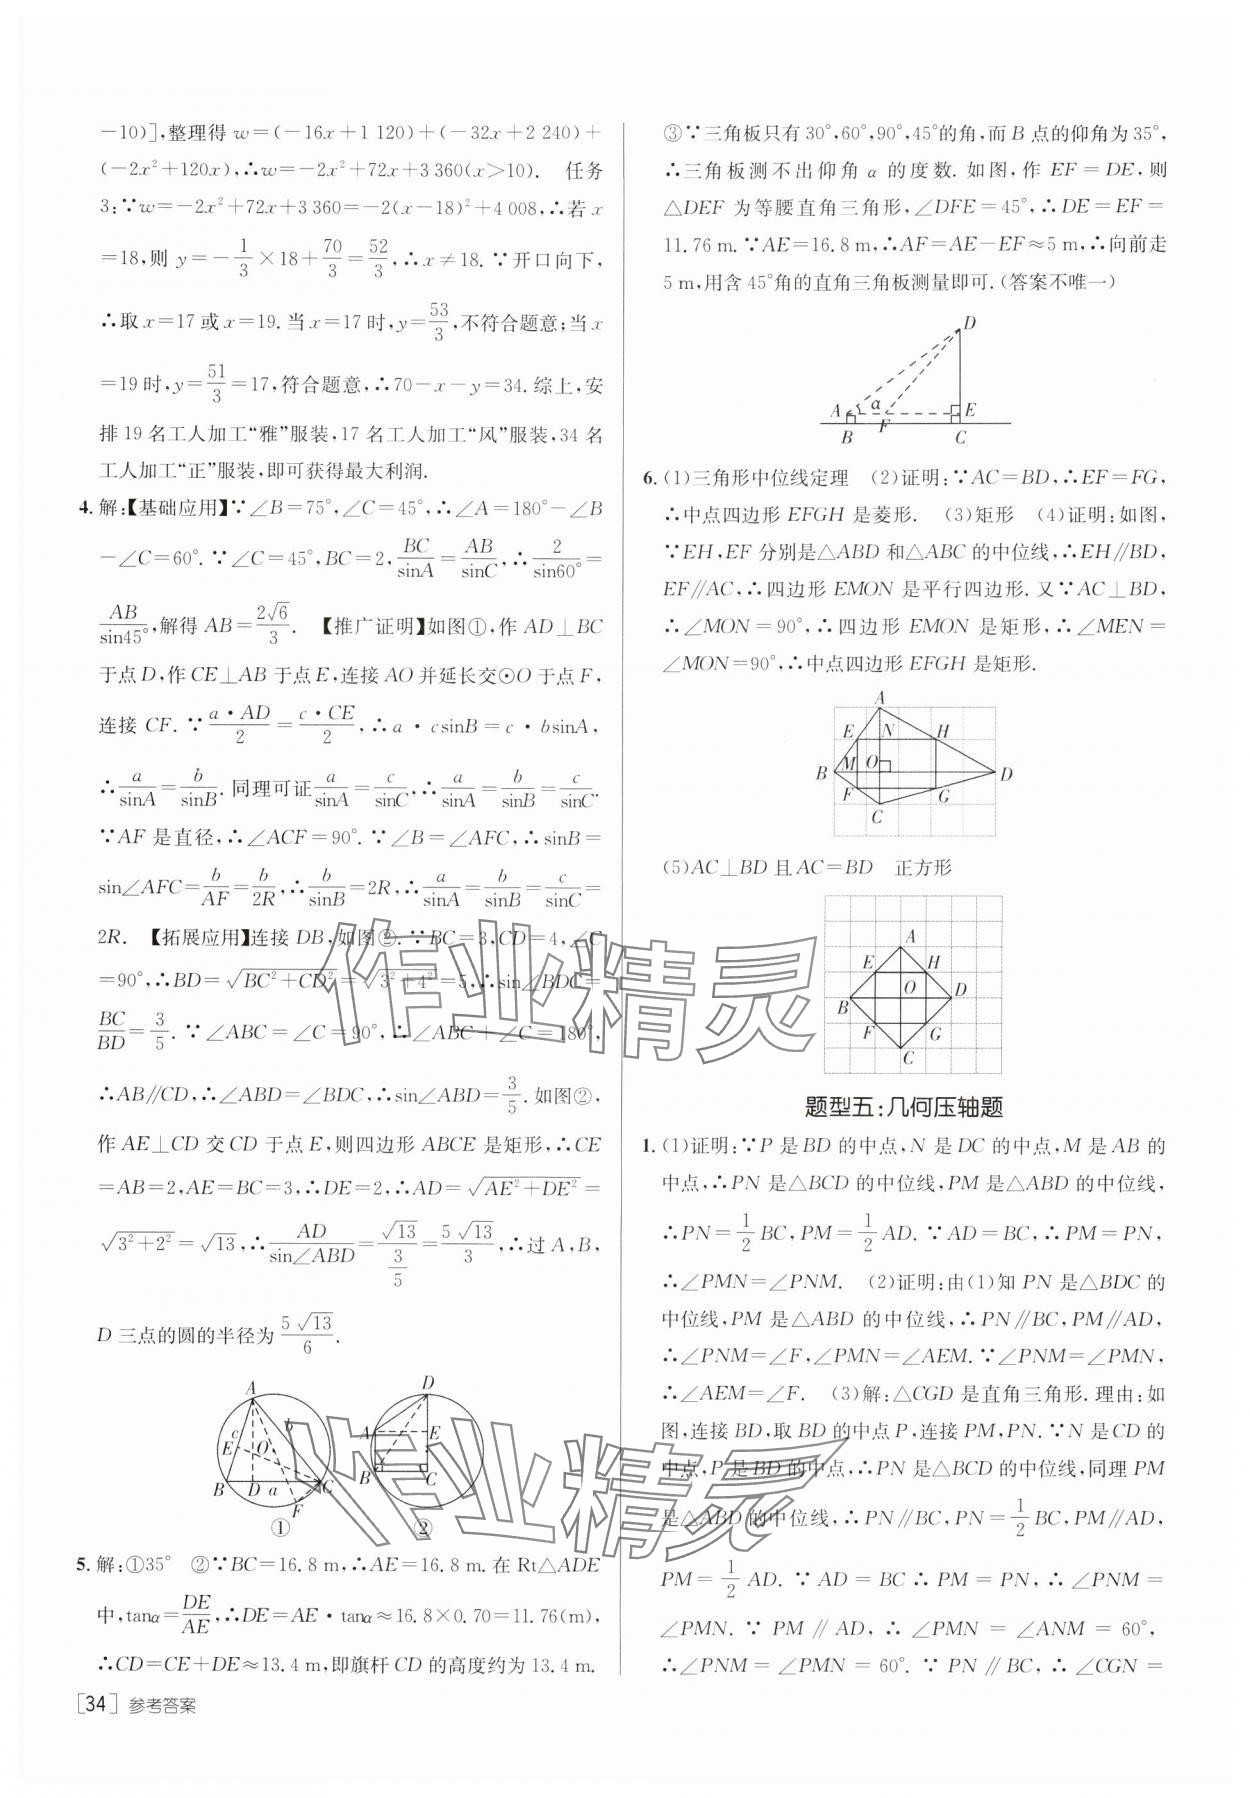 -10)],整理得 w=(-16x+1 120)+(-32x+2 240)+
(-2x²+120x),∴w=-2x²+72x+3 360(x>10). 任务
3:∵w=-2x²+72x+3 360=-2(x-18)²+4 008,∴若 x
=18,则 y=-1/3×18+70/3=52/3,∴x≠18.∵开口向下,
∴取 x=17 或 x=19.当 x=17 时,y=53/3,不符合题意;当 x
=19 时,y=51/3=17,符合题意,∴70-x-y=34.综上,安
排 19 名工人加工“雅”服装,17 名工人加工“风”服装,34 名
工人加工“正”服装,即可获得最大利润.
4. 解:【基础应用】∵∠B=75°,∠C=45°,∴∠A=180°-∠B
-∠C=60°.∵∠C=45°,BC=2,BC/sinA=AB/sinC,∴2/sin60°=
AB/sin45°,解得 AB=2√6/3. 【推广证明】如图①,作 AD⊥BC
于点 D,作 CE⊥AB 于点 E,连接 AO 并延长交⊙O 于点 F,
连接 CF.∵a·AD/2=c·CE/2,∴a·csinB=c·bsinA,
∴a/sinA=b/sinB.同理可证a/sinA=c/sinC,∴a/sinA=b/sinB=c/sinC.
∵AF 是直径,∴∠ACF=90°.∵∠B=∠AFC,∴sinB=
sin∠AFC=b/AF=b/2R,∴b/sinB=2R,∴a/sinA=b/sinB=c/sinC=
2R. 【拓展应用】连接 DB,如图②.∵BC=3,CD=4,∠C
=90°,∴BD=√BC²+CD²=√3²+4²=5,∴sin∠BDC=
BC/BD=3/5.∵∠ABC=∠C=90°,∴∠ABC+∠C=180°,
∴AB∥CD,∴∠ABD=∠BDC,∴sin∠ABD=3/5.如图②,
作 AE⊥CD 交 CD 于点 E,则四边形 ABCE 是矩形,∴CE
=AB=2,AE=BC=3,∴DE=2,∴AD=√AE²+DE²=
√3²+2²=√13,∴AD/sin∠ABD=√13/(3/5)=5√13/3,∴过 A,B,
D 三点的圆的半径为5√13/6.
A
c
b
E
O
B
D
a
C
F
①
D
A
E
B
C
②
5. 解:①35° ②∵BC=16.8 m,∴AE=16.8 m.在 Rt△ADE
中,tanα=DE/AE,∴DE=AE·tanα≈16.8×0.70=11.76(m),
∴CD=CE+DE≈13.4 m,即旗杆 CD 的高度约为 13.4 m.
③∵三角板只有 30°,60°,90°,45°的角,而 B 点的仰角为 35°,
∴三角板测不出仰角 α 的度数.如图,作 EF=DE,则
△DEF 为等腰直角三角形,∠DFE=45°,∴DE=EF=
11.76 m.∵AE=16.8 m,∴AF=AE-EF≈5 m,∴向前走
5 m,用含 45°角的直角三角板测量即可.(答案不唯一)
D
A
α
E
B
F
C
6. (1)三角形中位线定理 (2)证明:∵AC=BD,∴EF=FG,
∴中点四边形 EFGH 是菱形. (3)矩形 (4)证明:如图,
∵EH,EF 分别是△ABD 和△ABC 的中位线,∴EH∥BD,
EF∥AC,∴四边形 EMON 是平行四边形.又∵AC⊥BD,
∴∠MON=90°,∴四边形 EMON 是矩形,∴∠MEN=
∠MON=90°,∴中点四边形 EFGH 是矩形.
A
E
N
H
B
M
O
D
F
G
C
(5)AC⊥BD 且 AC=BD 正方形
A
E
H
O
B
D
F
G
C
题型五:几何压轴题
1. (1)证明:∵P 是 BD 的中点,N 是 DC 的中点,M 是 AB 的
中点,∴PN 是△BCD 的中位线,PM 是△ABD 的中位线,
∴PN=1/2BC,PM=1/2AD.∵AD=BC,∴PM=PN,
∴∠PMN=∠PNM. (2)证明:由(1)知 PN 是△BDC 的
中位线,PM 是△ABD 的中位线,∴PN∥BC,PM∥AD,
∴∠PNM=∠F,∠PMN=∠AEM.∵∠PNM=∠PMN,
∴∠AEM=∠F. (3)解:△CGD 是直角三角形.理由:如
图,连接 BD,取 BD 的中点 P,连接 PM,PN.∵N 是 CD 的
中点,P 是 BD 的中点,∴PN 是△BCD 的中位线,同理 PM
是△ABD 的中位线,∴PN∥BC,PN=1/2BC,PM∥AD,
PM=1/2AD.∵AD=BC∴PM=PN,∴∠PNM=
∠PMN.∵PM∥AD,∴∠PMN=∠ANM=60°,
∴∠PNM=∠PMN=60°.∵PN∥BC,∴∠CGN=
[34] 参考答案
作业精灵
作业精灵